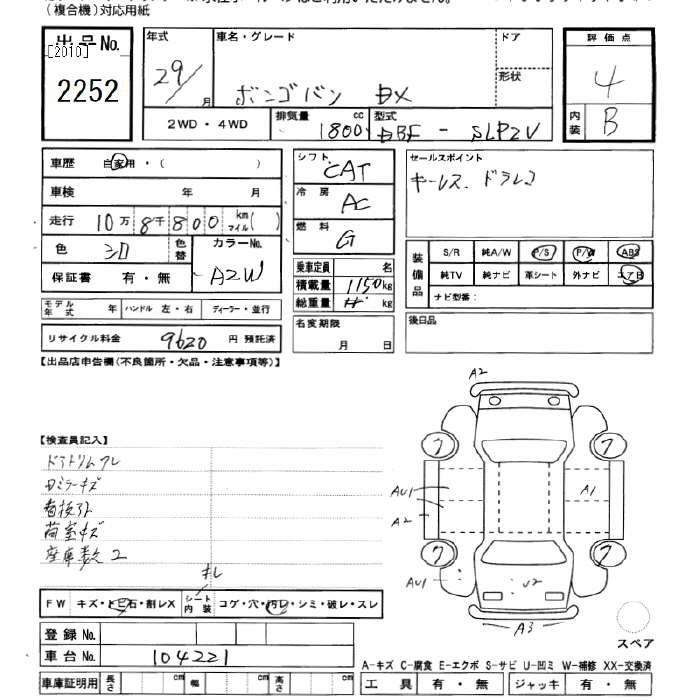 (複合機)対応用紙
出品No.
[2010]
2252
年式
29/
月
車名・グレード
ボンゴバン DX
ドア
形状
2WD・4WD
排気量
cc
1800
型式
DBF - SLP2V
評価点
4
内装
B
車歴
自家用・( )
車検
年 月
走行
10万8千800
km
マイル( )
色
シロ
色替
カラーNo.
A2W
保証書
有・無
モデル年式
年
ハンドル 左・右
ディーラー・並行
リサイクル料金
9620
円 預託済
シフト
CAT
冷房
AC
燃料
G
乗車定員
名
積載量
1150kg
総重量
kg
名変期限
月 日
セールスポイント
キーレス、ドラレコ
装備品
S/R 純A/W P/S P/W ABS
純TV 純ナビ 革シート 外ナビ エアB
ナビ型番:
後日品
【出品店申告欄(不良箇所・欠品・注意事項等)】
【検査員記入】
ドアトリムワレ
ミラーキズ
荷室キズ
2
キレ
FW
キズ・トビ石・割レX
シート内装
コゲ・穴・汚レ・シミ・破レ・スレ
登録No.
車台No.
104221
車庫証明用
長さ
cm
幅
cm
高さ
cm
A2
7
7
AU1
A2
A1
7
7
AU1
U2
A3
スペア
A-キズ C-腐食 E-エクボ S-サビ U-凹ミ W-補修 XX-交換済
工具
有・無
ジャッキ
有・無